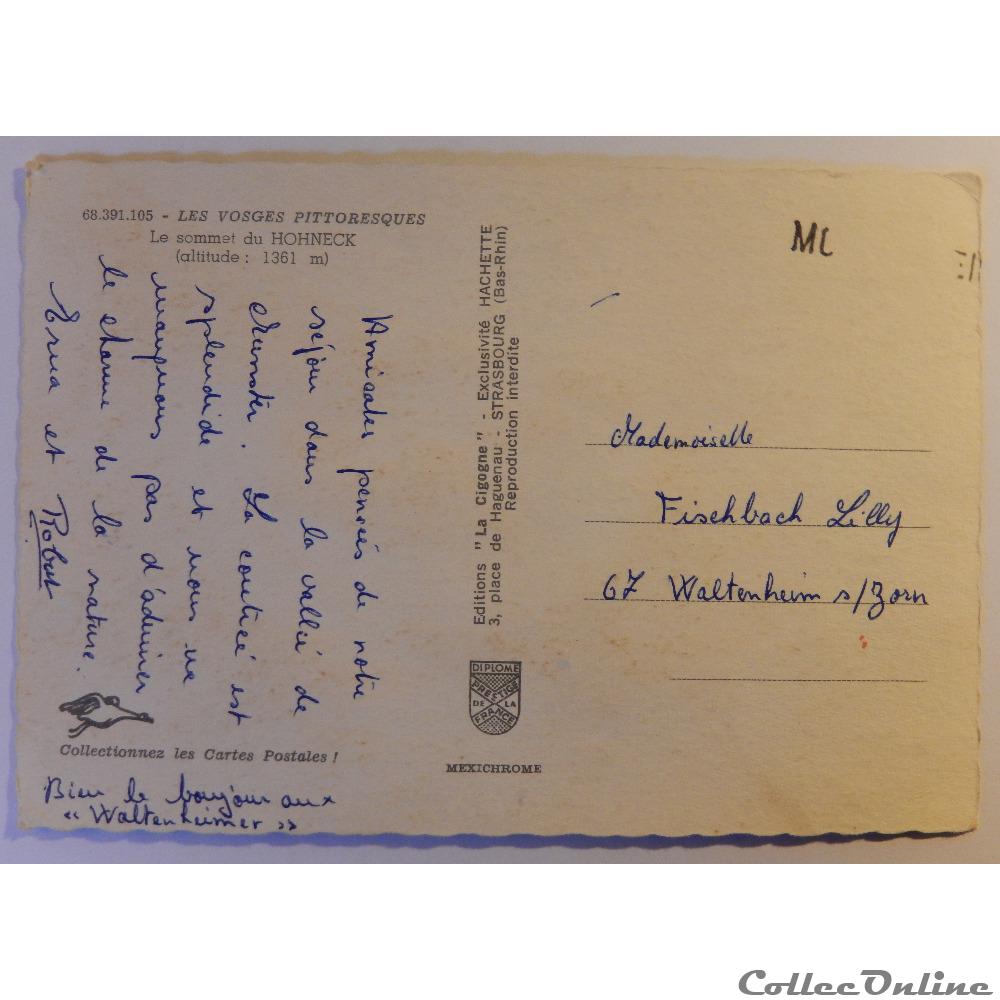 68.391.105 - LES VOSGES PITTORESQUES
Le sommet du HOHNECK
(altitude : 1361 m)
Amicales pensées de notre
séjour dans la vallée de
Munster. La contrée est
splendide et nous ne
manquons pas d'admirer
le charme de la nature.
Erna et Robert
Collectionnez les Cartes Postales !
Bien le bonjour aux
"Waltenheimer"
Editions "La Cigogne" - Exclusivité HACHETTE
3, place de Haguenau - STRASBOURG (Bas-Rhin)
Reproduction interdite
DIPLOME
PRESTIGE
DE LA
FRANCE
MEXICHROME
ML
Mademoiselle
Fischbach Lilly
67 Waltenheim s/Zorn
CollecOnline